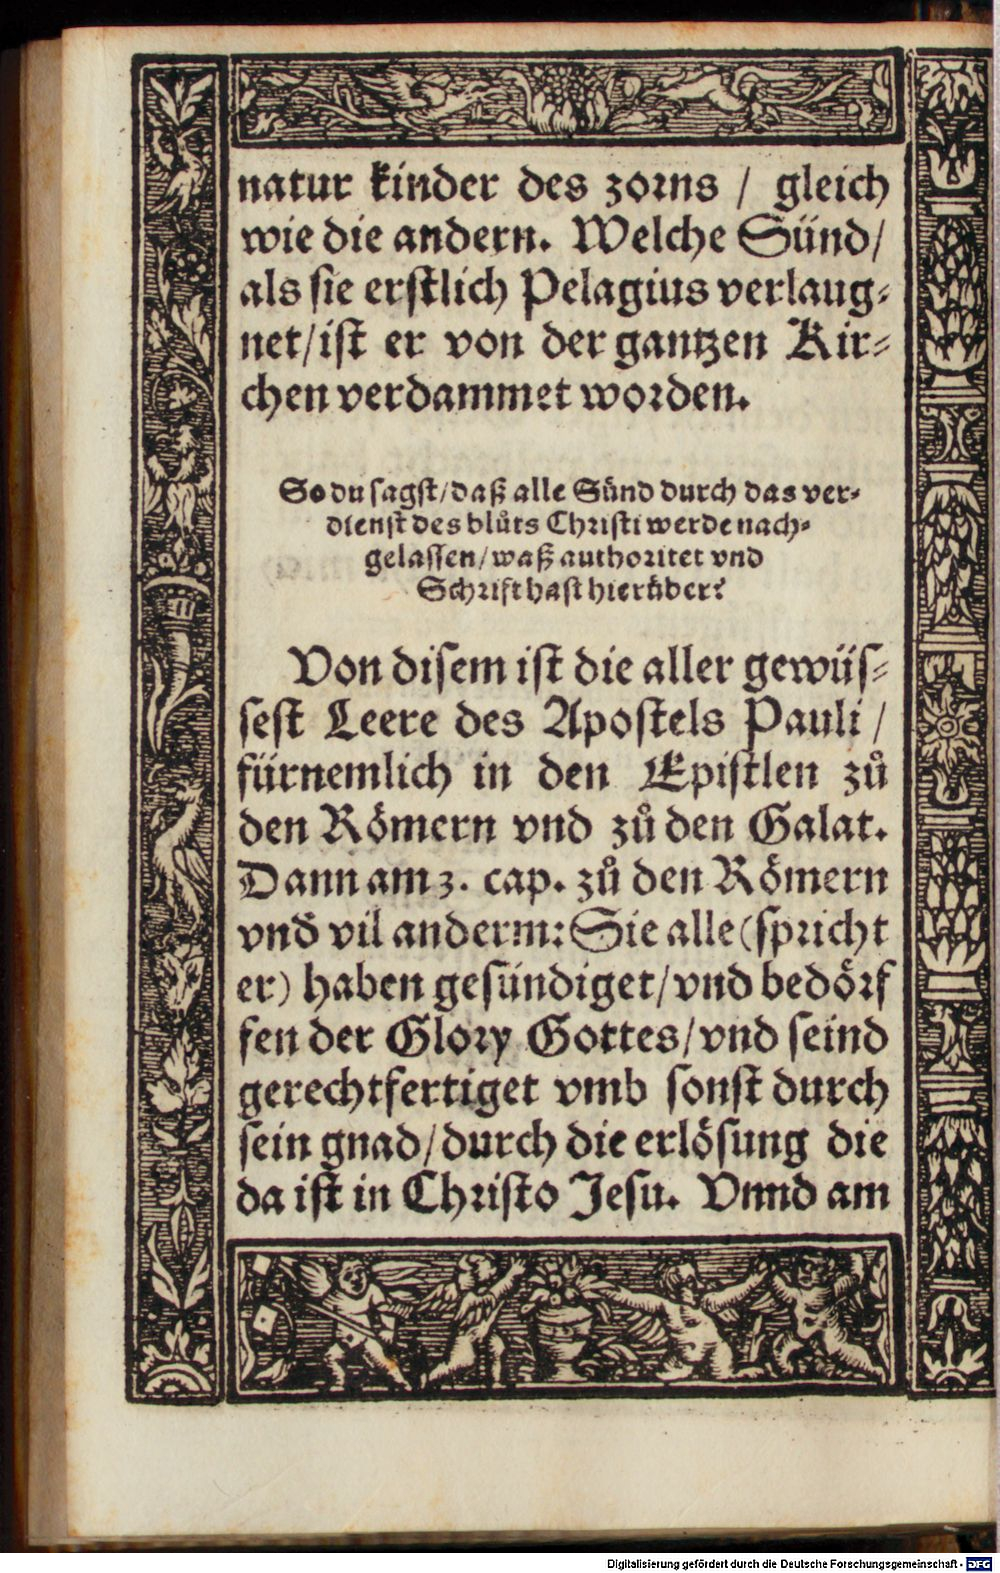 natur kinder des zorns / gleich
wie die andern. Welche Sünd/
als sie erstlich Pelagius verlaug-
net/ist er von der gantzen Kir-
chen verdammet worden.
So du sagst/daß alle Sünd durch das ver-
dienst des blůts Christi werde nach-
gelassen/waß authoritet vnd
Schrifft hast hierüber?
Von disem ist die aller gewüs-
sest Leere des Apostels Pauli /
fürnemlich in den Epistlen zů
den Römern vnd zů den Galat.
Dann am 3. cap. zů den Römern
vnd vil anderm: Sie alle (spricht
er) haben gesündiget/vnd bedörf
fen der Glory Gottes/vnd seind
gerechtfertiget vmb sonst durch
sein gnad/durch die erlösung die
da ist in Christo Jesu. Vnnd am
Digitalisierung gefördert durch die Deutsche Forschungsgemeinschaft - DFG